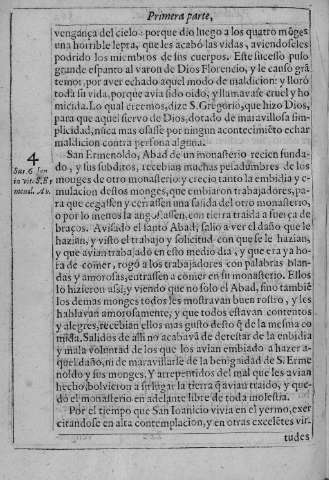 Primera parte,
vengança del cielo: porque dio luego a los quatro mõges
una horrible lepra, que les acabó las vidas, aviendoseles
podrido los miembros de sus cuerpos. Este sucesso puso
grande espanto al varon de Dios Florencio, y le causo grã
temor, por aver echado aquel modo de maldicion: y lloró
toda su vida, porque avia sido oido, y llamavase cruel y ho
micida. Lo qual creemos, dize S. Gregorio, que hizo Dios,
para que aquel siervo de Dios, dotado de maravillosa sim-
plicidad, nũca mas osasse por ningun acontecimiẽto echar
maldicion contra persona alguna.
4
Sur. 6. Jan
in vit. S. Er
menol. Ab.
San Ermenoldo, Abad de un monasterio recien funda-
do, y sus subditos, recebian muchas pesadumbres de los
monges de otro monasterio; y crecio tanto la embidia y e-
mulacion destos monges, que embiaron trabajadores, pa-
ra que cegassen y cerrassen una salida del otro monasterio,
o por lo menos la angostassen, con tierra traida a fuerça de
braços. Avisado el santo Abad, salio a ver el daño que le
hazian, y visto el trabajo y solicitud con que se le hazian,
y que avian trabajado en esto medio dia, y que era ya ho-
ra de comer, rogó a los trabajadores con palabras blan-
das y amorosas, entrassen a comer en su monasterio. Ellos
lo hizieron assi, y viendo que no solo el Abad, sino tambiẽ
los demas monges todos les mostravan buen rostro, y les
hablavan amorosamente, y que todos estavan contentos
y alegres, recebian ellos mas gusto desto q̃ de la mesma co
mida. Salidos de alli no acabavã de detestar de la embidia
y mala voluntad de los que los avian embiado a hazer a-
quel daño, ni de maravillarse de la benignidad de S. Erme
noldo y sus monges. Y arrepentidos del mal que les avian
hecho, bolvieron a su lugar la tierra q̃ avian traido, y que-
dó el monasterio en adelante libre de toda molestia.
Por el tiempo que San Ioanicio vivia en el yermo, exer
citandose en alta contemplacion, y en otras excelẽtes vir-
tudes